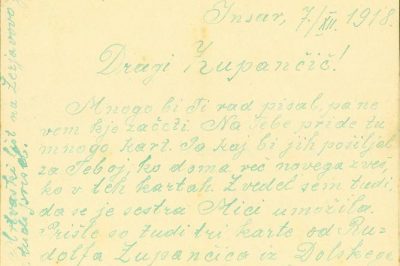 Insar, 7/XII. 1918.
Dragi Župančič!
Mnogo bi Ti rad pisal, pa ne
vem kje začeti. Na Tebe pride tu
mnogo kart. Pa kaj bi jih pošiljal
za Teboj, ko doma več novega zveš,
ko v teh kartah. Zvedel sem tudi,
da se je sestra Mici umožila.
Prišle so tudi tri karte od Ru-
dolfa Zupančiča iz Dolskega